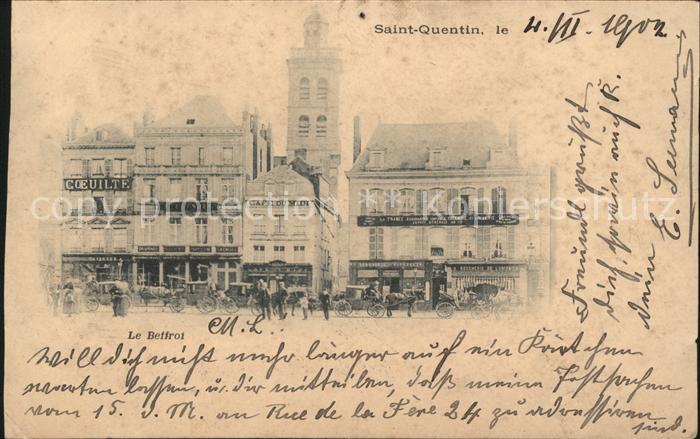 Saint-Quentin, le 4./II. 1902
CŒUILTE
CAFÉ DU MIDI
LA FRANCE
Le Beffroi
M. L.
Will dich nicht mehr länger auf ein Kärtchen
warten lassen, u. dir mitteilen, daß meine Postsachen
vom 15. d. M. an Rue de la Fère 24 zu adressiren
sind.
Freundl. grüßt
dich, sowie auch K.
dein E.